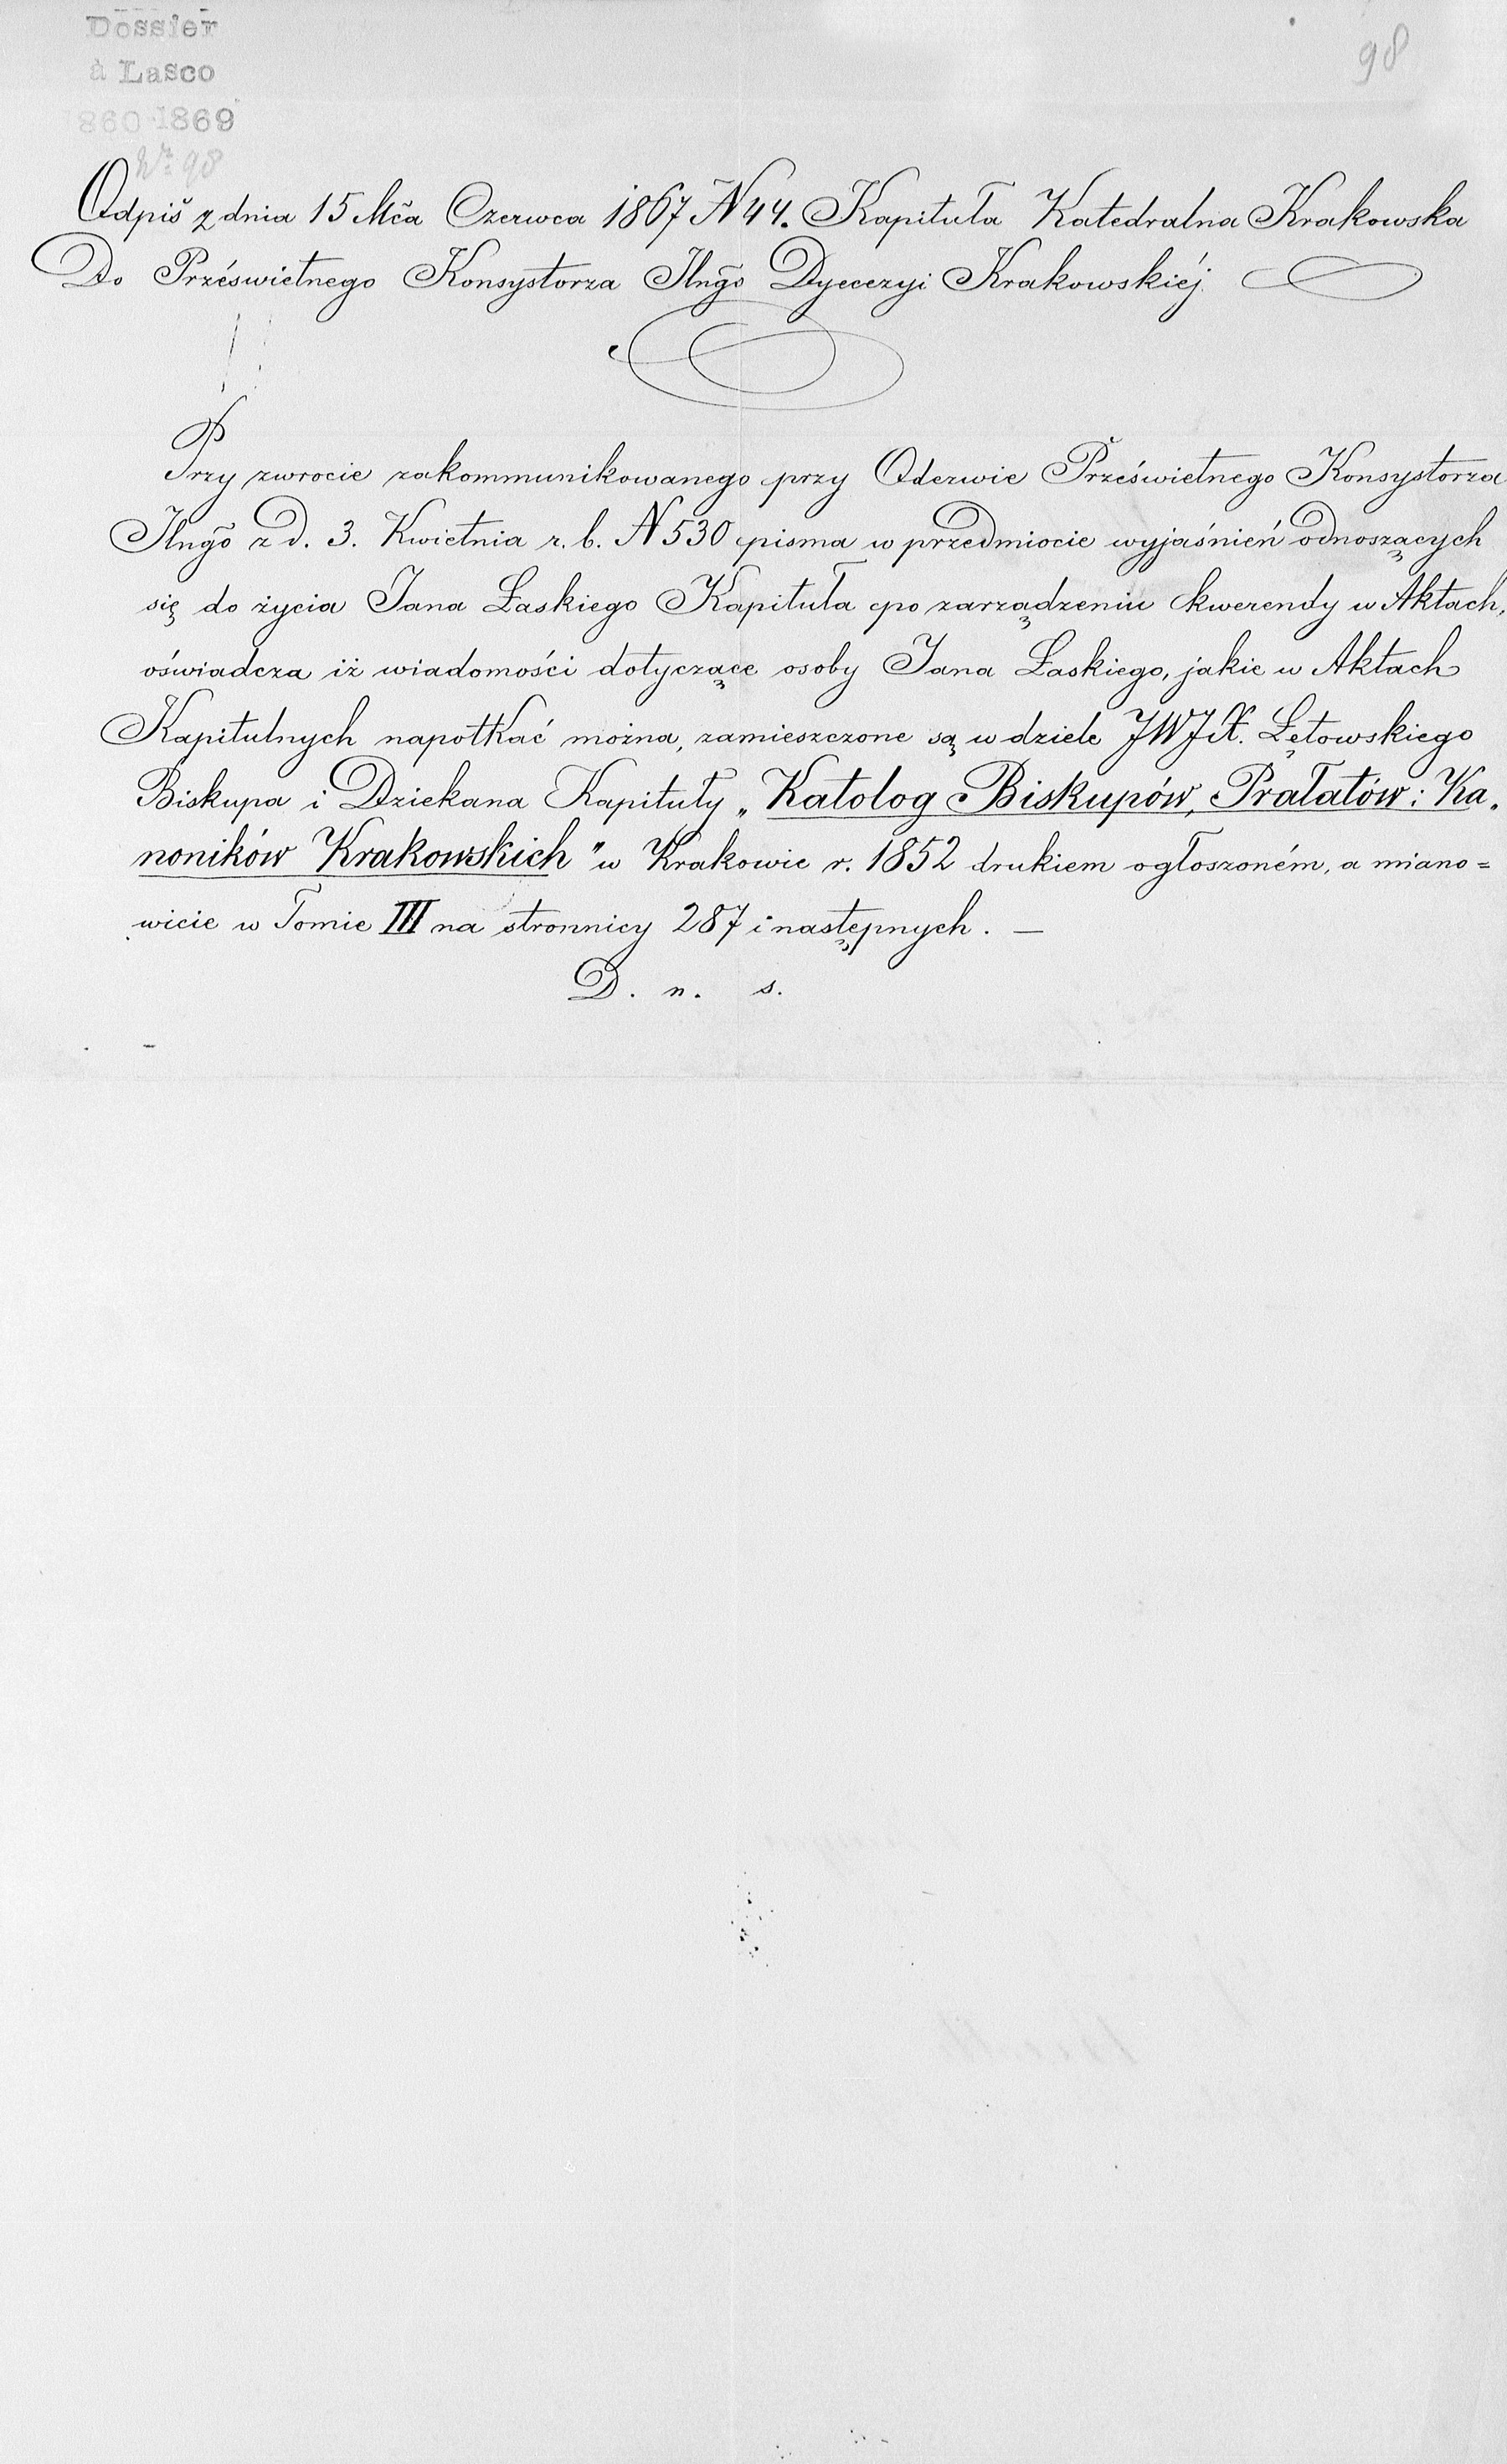 Dossier
à Lasco
1860-1869
Nr. 98
98
Odpis z dnia 15 Mča Czerwca 1867 N 44. Kapituła Katedralna Krakowska
Do Prześwietnego Konsystorza Jlngõ Dyecezyi Krakowskiéj
Przy zwrocie zakommunikowanego przy Odezwie Prześwietnego Konsystorza
Jlngõ z d. 3. Kwietnia r. b. N 530 pisma w przedmiocie wyjaśnień odnoszących
się do życia Jana Łaskiego Kapituła po zarządzeniu kwerendy w Aktach,
oświadcza iż wiadomości dotyczące osoby Jana Łaskiego, jakie w Aktach
Kapitulnych napotkać można, zamieszczone są w dziele JWJX. Łętowskiego
Biskupa i Dziekana Kapituły „Katolog Biskupów, Prałatów i Ka„
noników Krakowskich" w Krakowie r. 1852 drukiem ogłoszoném, a miano=
wicie w Tomie III na stronnicy 287 i następnych. —
D. n. s.